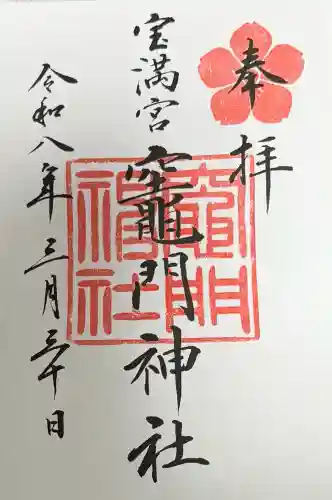 奉拝
宝満宮
竈門神社
令和八年三月三十日
竈門
神社